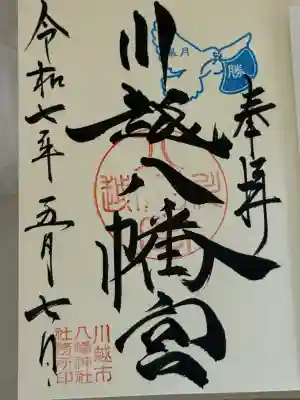 奉拝
月
勝
川越八幡宮
川越市
八幡神社
社務所印
令和七年五月七日